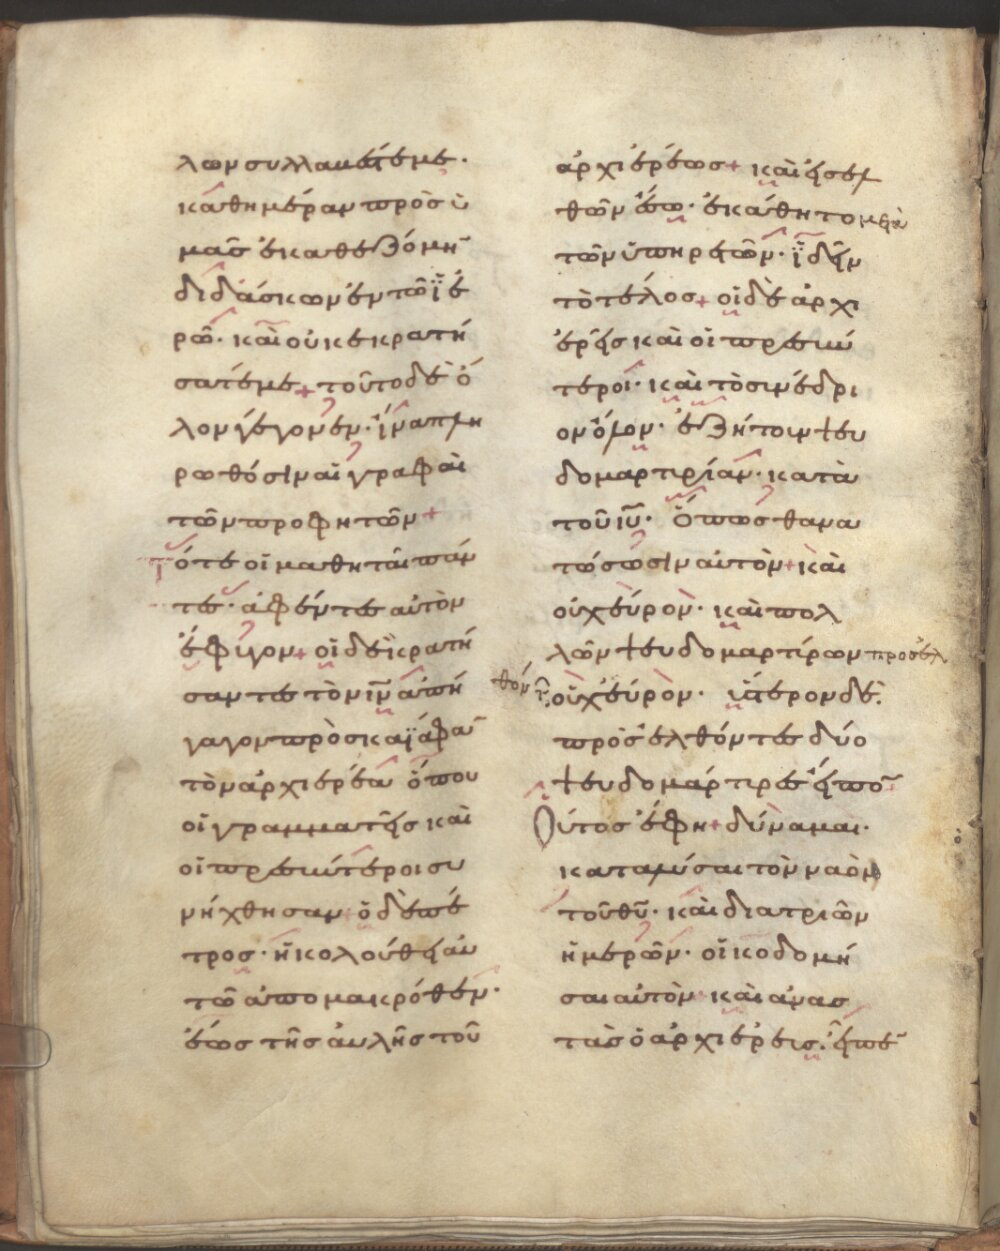 λων συλλαβεῖν με·
κάθημέραν πρὸς ὑ
μᾶς ἐκαθεζόμην
διδάσκων ἐν τῶ ἱε
ρῶ· καὶ οὐκ ἐκρατή
σατέ με + τοῦτο δὲ ὅ
λον γέγονεν· ἵνα πλη
ρωθόσιν αἱ γραφαὶ
τῶν προφητῶν +
Τότε οἱ μαθηταὶ πάν
τες· ἀφέντες αὐτὸν
ἔφιγον + οἱ δὲ κρατή
σαντες τὸν ιν ἀπή
γαγον πρὸς καϊάφαν
τὸν ἀρχιερέα ὅπου
οἱ γραμματεῖς καὶ
οἱ πρεσβύτεροι συ
νήχθησαν + ὁ δὲ πέ
τρος· ἠκολούθει αὐ
τῶ ἀπομακρόθεν·
ἕως τῆς αὐλῆς τοῦ
ἀρχιερέως + καὶ εἰσελ
θῶν ἔσω· ἐκάθητο μετὰ
τῶν ὑπηρετῶν· ἰδεῖν
τὸ τέλος + οἱ δὲ ἀρχι
ερεῖς καὶ οἱ πρεσβύ
τεροι· καὶ τὸ σινέδρι
ον ὅλον· ἐζήτουν ψευ
δομαρτιρίαν· κατὰ
τοῦ ιυ· ὅπως θανα
τώσωσιν αὐτὸν + καὶ
οὐχ εὗρον· καὶ πολ
λῶν ψευδομαρτίρων προσελ
θόντ οὐχ εὗρον· ὕστερον δὲ
προσελθόντες δύο
ψευδομάρτιρες εἶπον
Οὗτος ἔφη + δύναμαι·
καταλύσαι τὸν ναὸν
τοῦ θυ· καὶ διατριῶν
ἡμερῶν· οἰκοδομή
σαι αὐτὸν + καὶ ἀνασ
τὰς ὁ ἀρχιερεὶς· εἶπεν